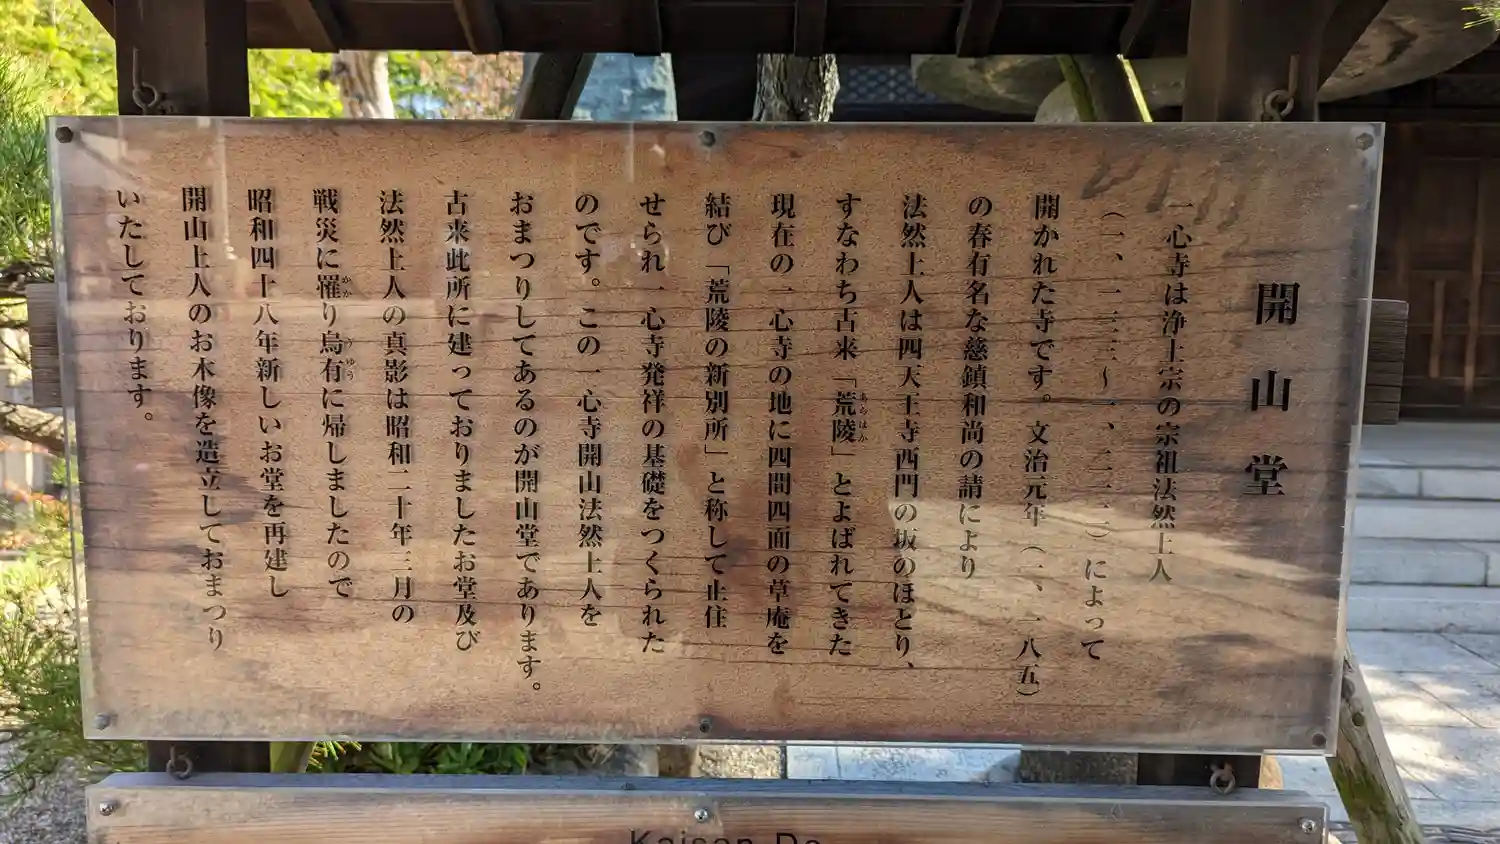 開山堂
一心寺は浄土宗の宗祖法然上人
(一、一三三〜一、二一二)によって
開かれた寺です。文治元年(一、一八五)
の春有名な慈鎮和尚の請により
法然上人は四天王寺西門の坂のほとり、
すなわち古来「荒陵」とよばれてきた
あらはか
現在の一心寺の地に四間四面の草庵を
結び「荒陵の新別所」と称して止住
せられ一心寺発祥の基礎をつくられた
のです。この一心寺開山法然上人を
おまつりしてあるのが開山堂であります。
古来此所に建っておりましたお堂及び
法然上人の真影は昭和二十年三月の
戦災に罹り烏有に帰しましたので
かか うゆう
昭和四十八年新しいお堂を再建し
開山上人のお木像を造立しておまつり
いたしております。
Kaisan Do